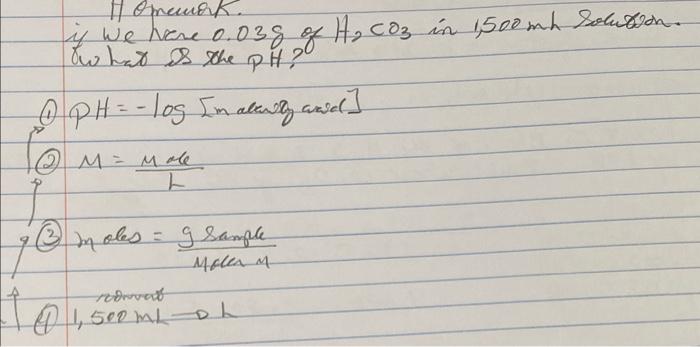 Homework.
if We have 0.03g of H2CO3 in 1,500 mL Solution.
What is the pH?
① pH = -log [molarity acid]
② M = Mole
L
③ moles = g Sample
Molar M
convert
④ 1,500 mL → L